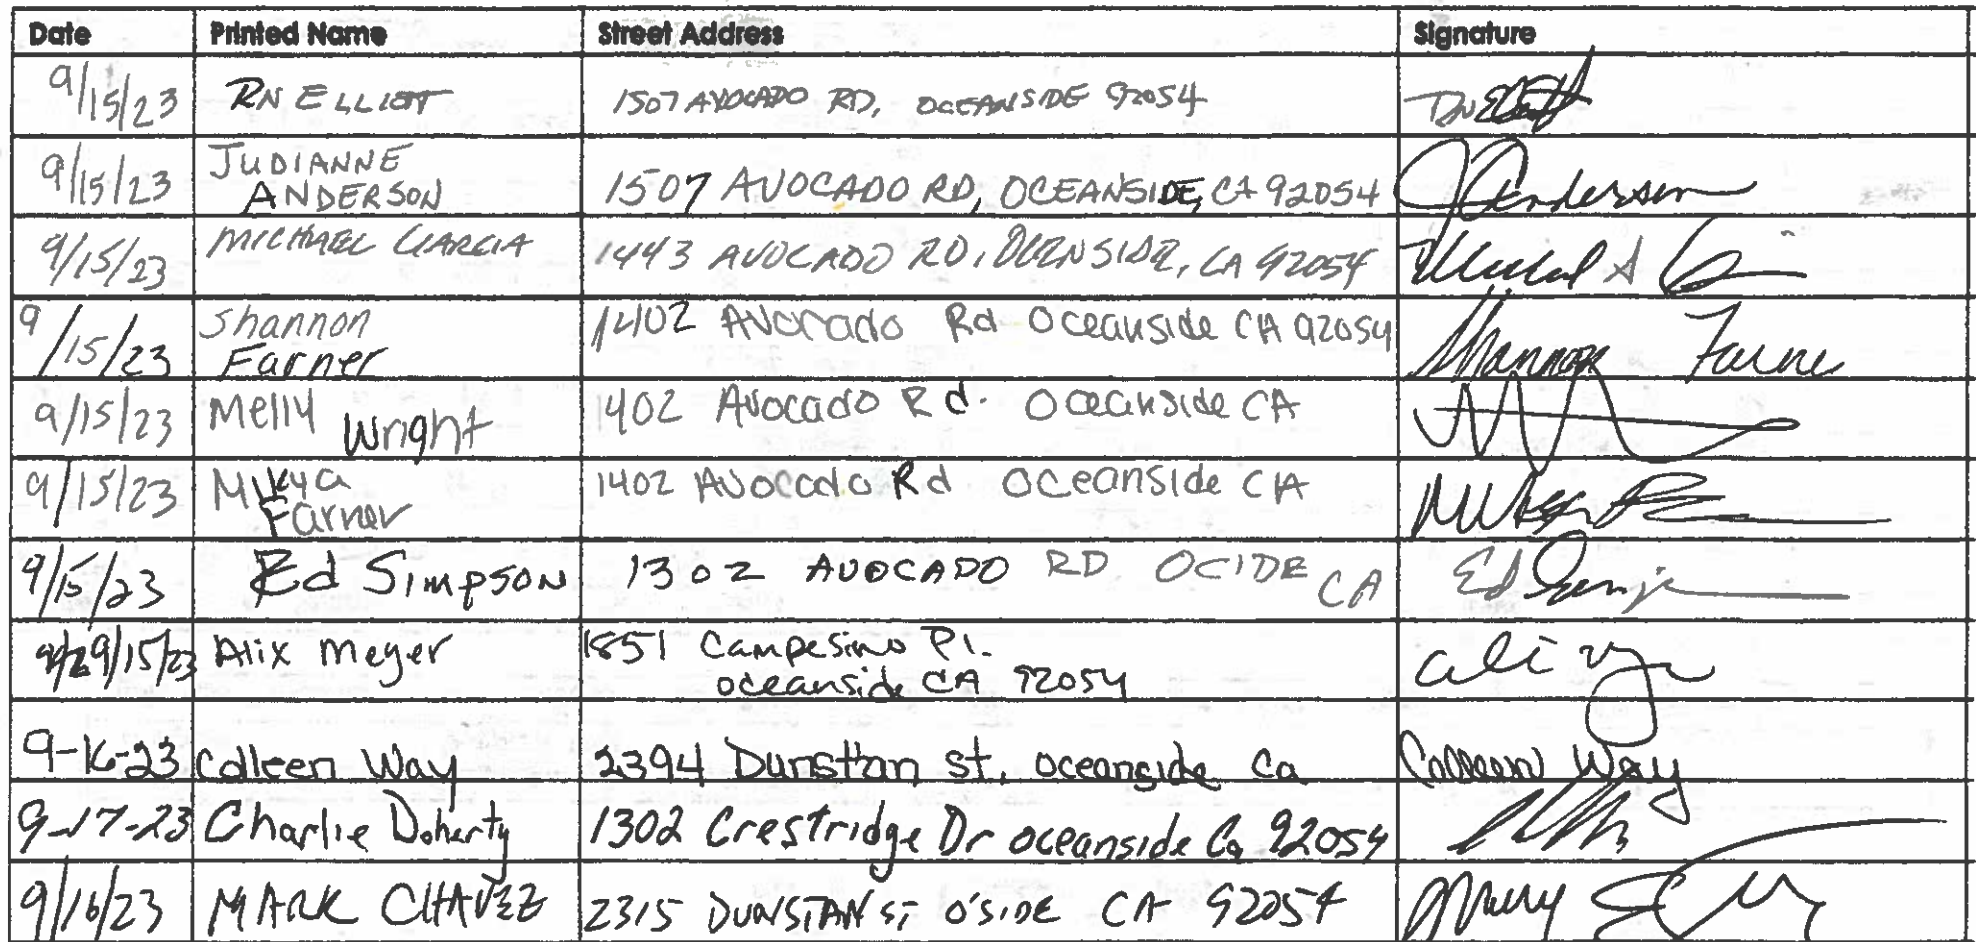 Date Printed Name Street Address Signature
9/15/23 RN ELLIOTT 1507 AVOCADO RD, OCEANSIDE 92054
9/15/23 JUDIANNE ANDERSON 1507 AVOCADO RD, OCEANSIDE, CA 92054 J Anderson
9/15/23 MICHAEL GARCIA 1443 AVOCADO RD, OCEANSIDE, CA 92054 Michael A
9/15/23 Shannon Farner 1402 Avocado Rd Oceanside CA 92054 Shannon Farne
9/15/23 Melly Wright 1402 Avocado Rd. Oceanside CA
9/15/23 Mikya Farner 1402 Avocado Rd Oceanside CA
9/15/23 Ed Simpson 1302 AVOCADO RD OCIDE CA Ed Simpson
9/15/23 Alix Meyer 1851 Campesino Pl. oceanside CA 92054
9-16-23 Colleen Way 2394 Dunstan st. oceanside Ca Colleen Way
9-17-23 Charlie Doherty 1302 Crestridge Dr oceanside Ca 92054
9/16/23 MARK CHAVEZ 2315 DUNSTAN ST O'SIDE CA 92054